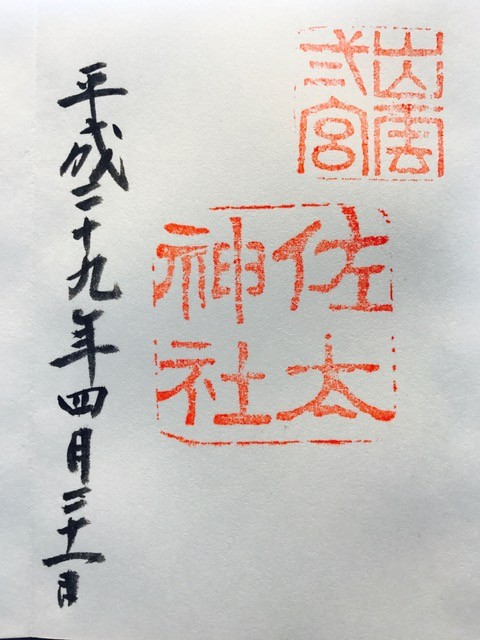 出雲
弍宮
佐太
神社
平成二十九年四月二十一日